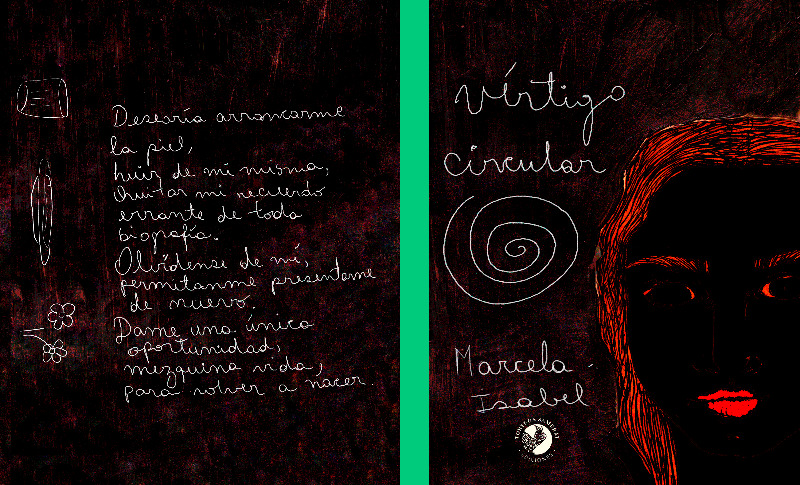 Desearía arrancarme
la piel,
huir de mí misma,
quitar mi recuerdo
errante de toda
biografía.
Olvídense de mí,
permítanme presentarme
de nuevo.
Dame una única
oportunidad,
mezquina vida,
para volver a nacer.
Vértigo
circular
Marcela
Isabel
EDICIONES